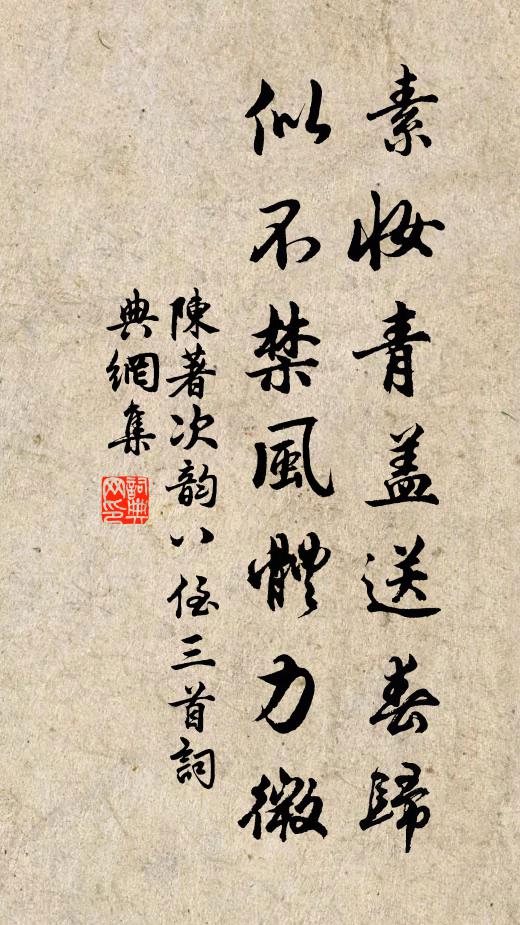 素妝青蓋送春歸
似不禁風體力微
陳著次韵八侄三首詞
典網集
詞典網印